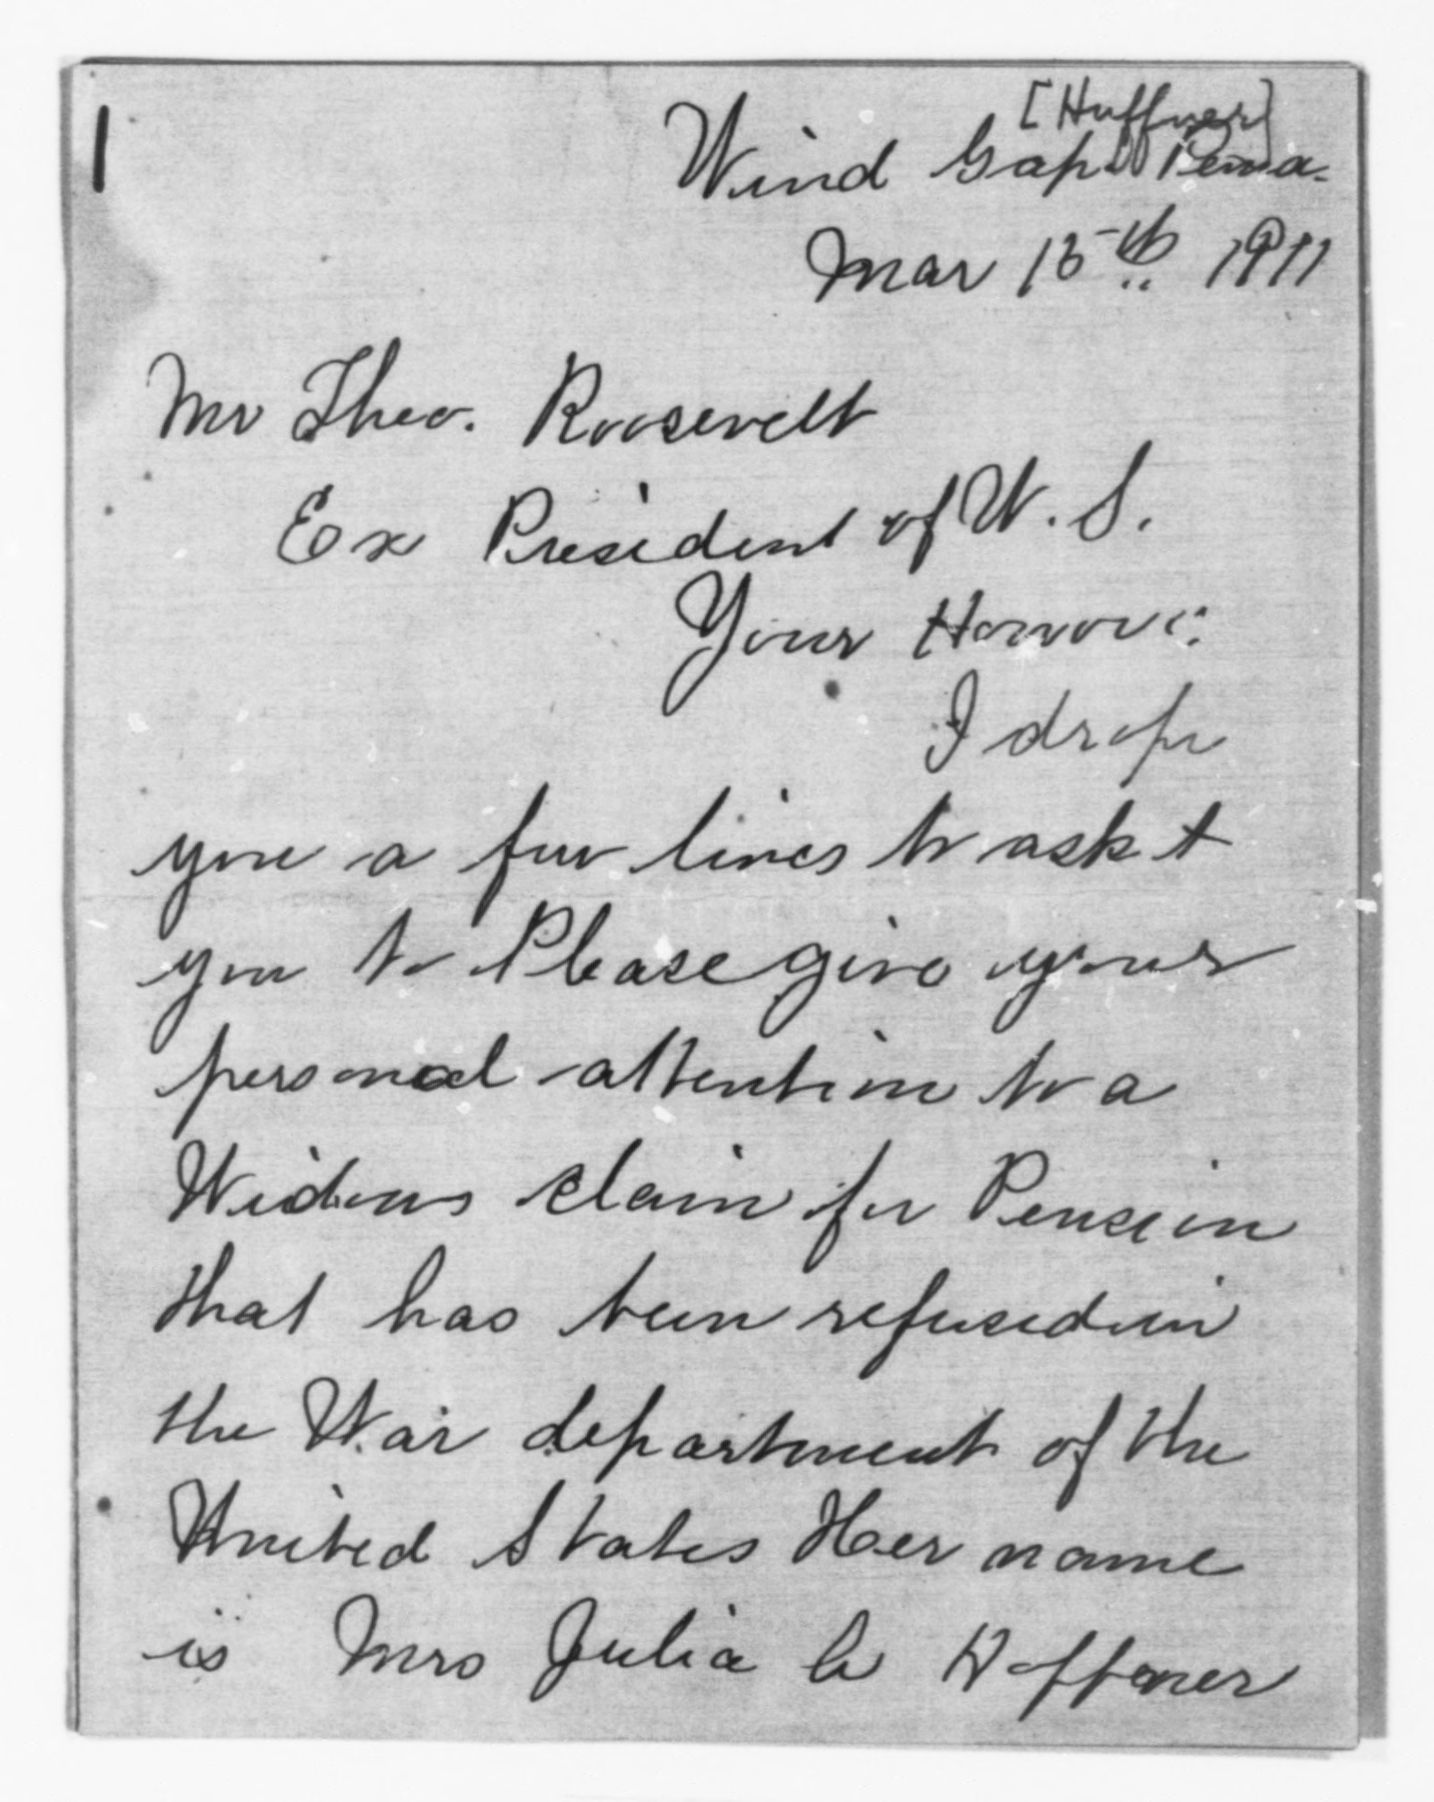 1
[Huffner]
Wind Gap Penna.
Mar 15th 1911
Mr Theo. Roosevelt
Ex President of U. S.
Your Honor:
I drop
you a few lines to ask t
you to Please give your
personal attention to a
Widows claim for Pension
that has been refused in
the War department of the
United States Her name
is Mrs Julia Hoffener